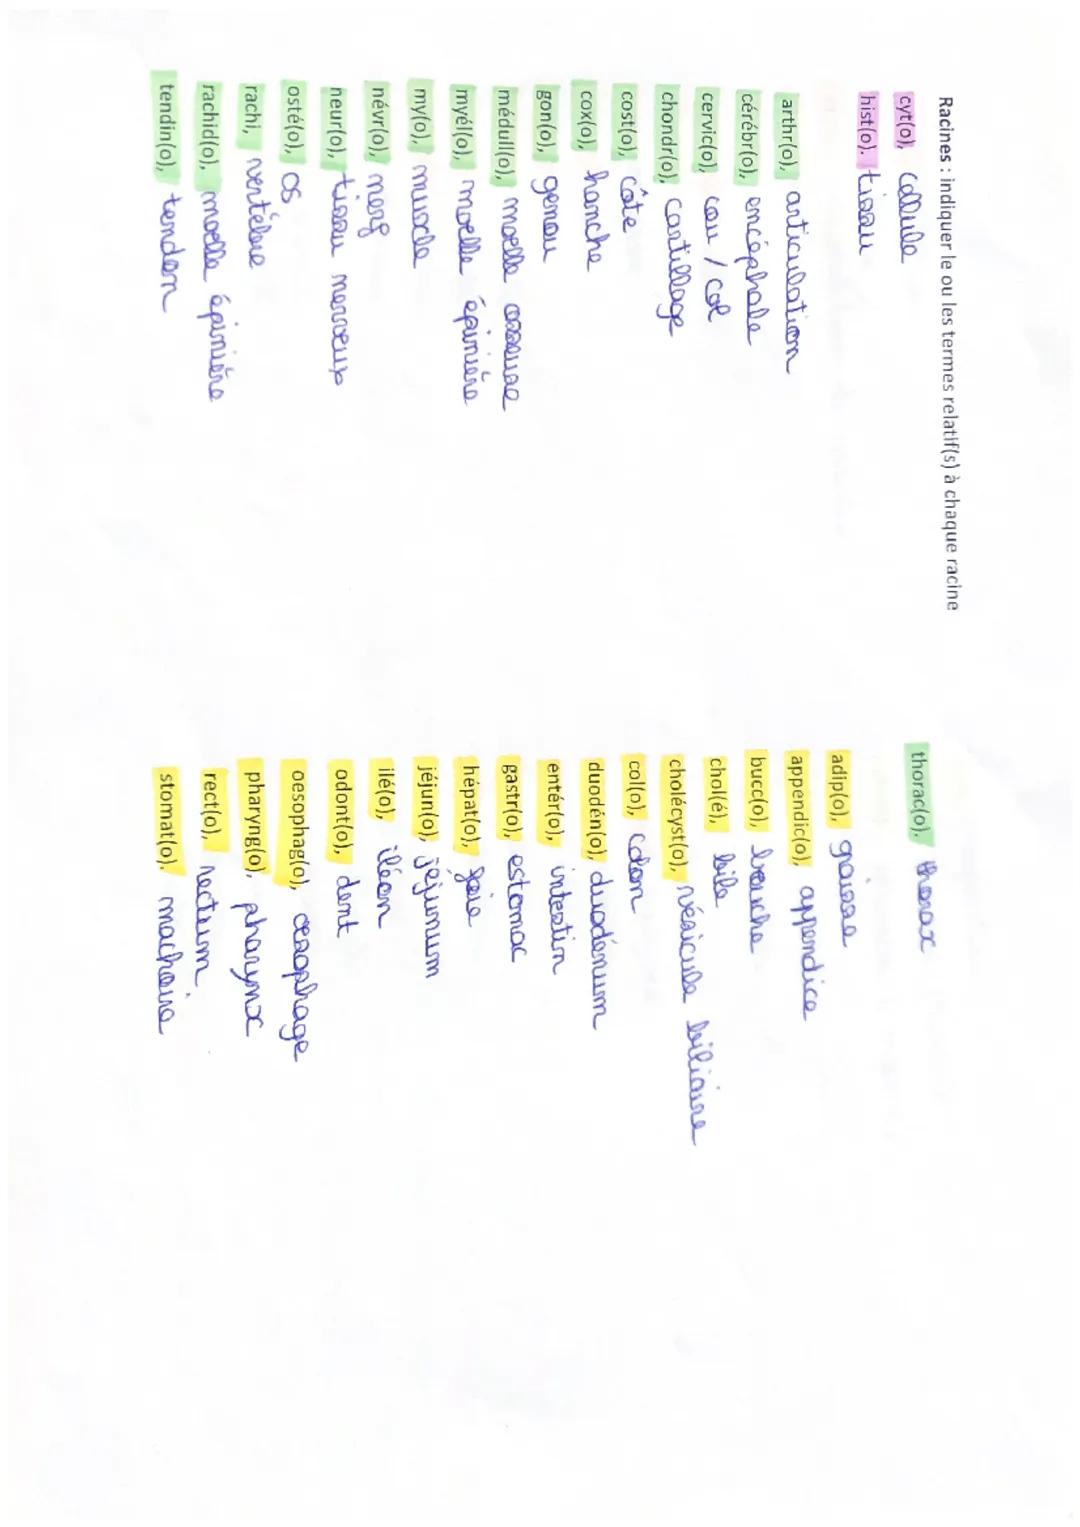 Racines : indiquer le ou les termes relatif(s) à chaque racine
cyt(o), cellule
hist(o). tissu
arthr(o), articulation
cérébr(o), encéphale
cervic(o), cou / col
chondr(o), cartillage
cost(o), côte
cox(o), hanche
gon(o), genou
médull(o), moelle osseuse
myél(o), moelle épinière
my(o), muscle
névr(o), nerf
neur(o), tissu nerveux
osté(o), os
rachi, vertébre
rachid(o), moelle épinière
tendin(o), tendon
thorac(o). thorax
adip(o), graisse
appendic(o), appendice
bucc(o), bouche
chol(é), bile
cholécyst(o), vésicule biliaire
col(o), colon
duodén(o), duodénum
entér(o), intestin
gastr(o), estomac
hépat(o), foie
jéjun(o), jéjunum
ilé(o), iléon
odont(o), dent
oesophag(o), œsophage
pharyng(o), pharynx
rect(o), rectum
stomat(o). machoire